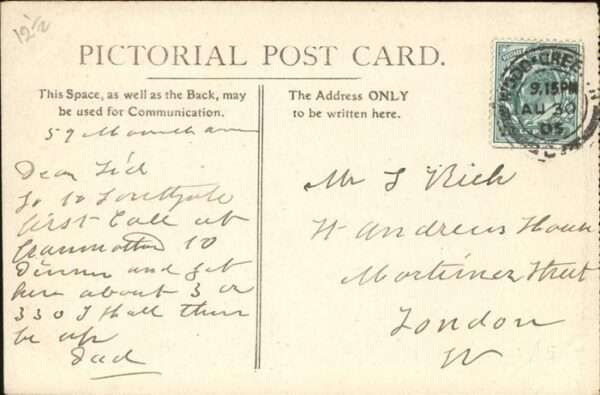 12½
PICTORIAL POST CARD.
This Space, as well as the Back, may
be used for Communication.
The Address ONLY
to be written here.
WOOD GREEN
9.15PM
AU 30
05
59
Dear Sid
Go to Southgate
first Call at
Grannother to
Dinner and get
here about 3 or
330 I shall then
be up
Dad
Mr S Rich
St Andrews House
Mortimer Street
London
W
15